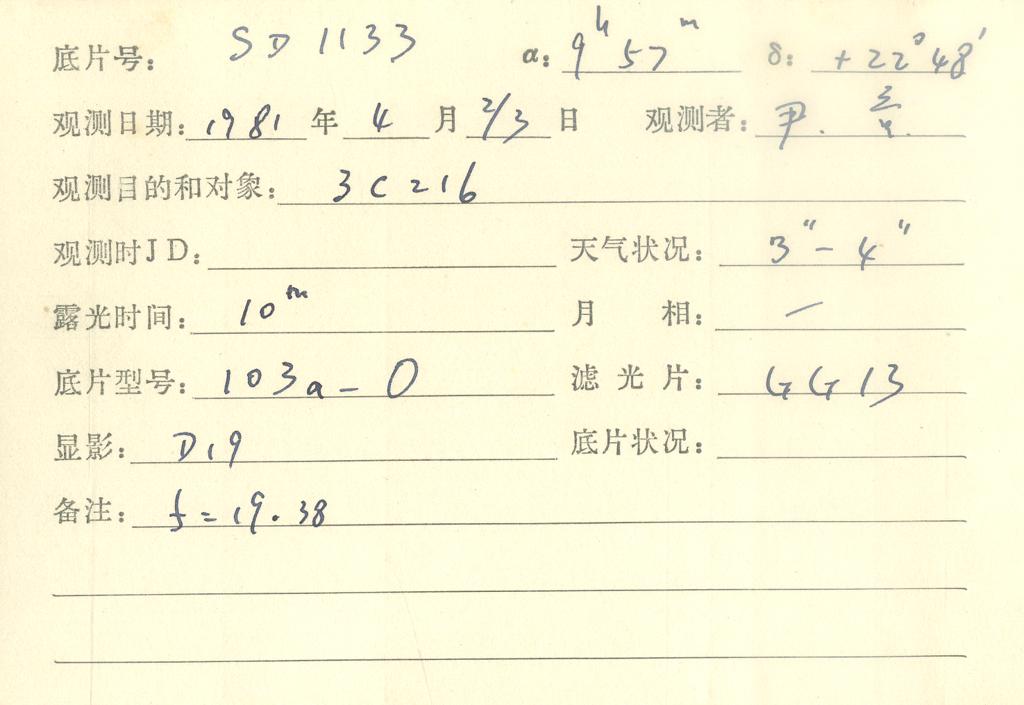 底片号: SD 1133 α: 9ʰ57ᵐ δ: +22°48′
观测日期: 1981 年 4 月 2/3 日 观测者: 尹.
观测目的和对象: 3C216
观测时JD: 天气状况: 3″-4″
露光时间: 10ᵐ 月 相: —
底片型号: 103a-O 滤光片: GG13
显影: D19 底片状况:
备注: f=19.38